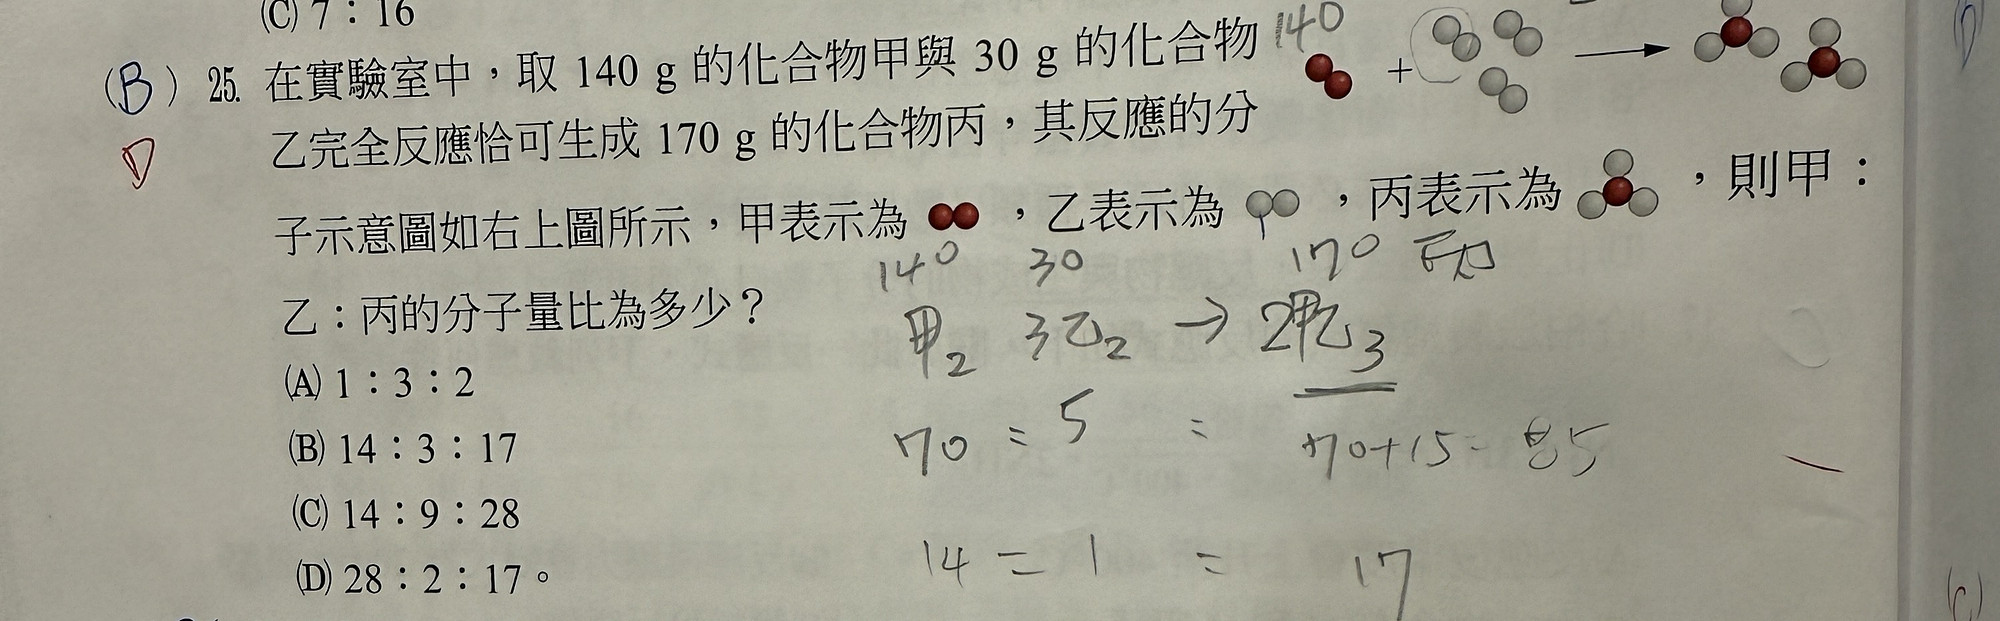 (C) 7：16
（B）25. 在實驗室中，取 140 g 的化合物甲與 30 g 的化合物
140
+ →
D
乙完全反應恰可生成 170 g 的化合物丙，其反應的分
子示意圖如右上圖所示，甲表示為 ，乙表示為 ，丙表示為 ，則甲：
140 30 170
乙：丙的分子量比為多少？
甲₂ 3乙₂ → 2甲乙₃
(A) 1：3：2
70 : 5 : 70+15=85
(B) 14：3：17
(C) 14：9：28
14 : 1 : 17
(D) 28：2：17。